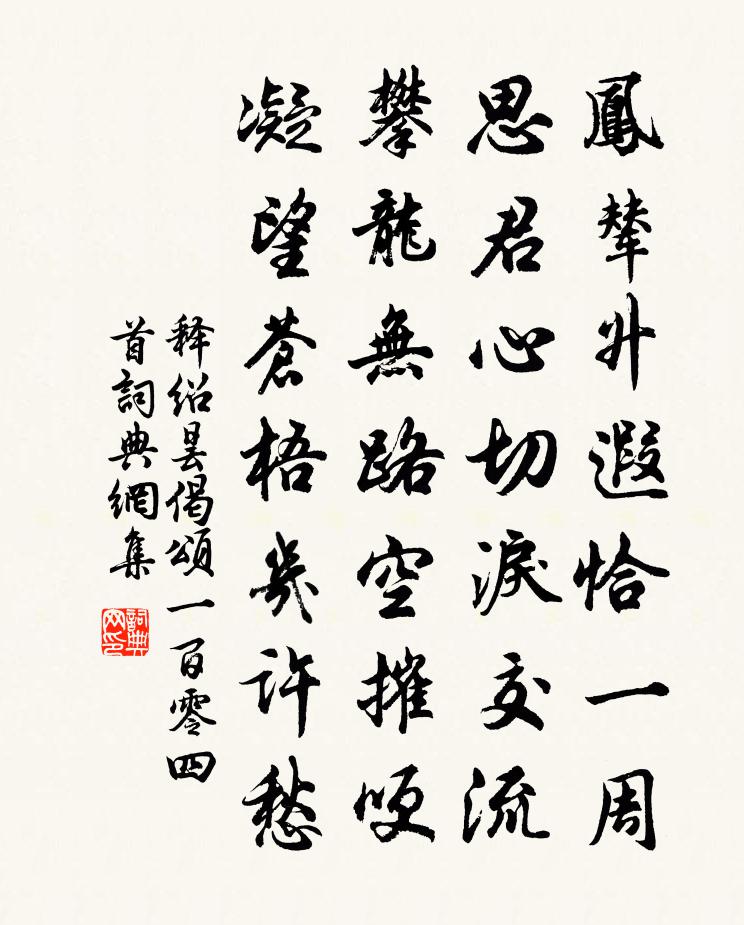 鳳輦升遐恰一周
思君心切淚交流
攀龍無路空摧哽
凝望蒼梧幾許愁
释绍昙偈頌一百零四
首詞典網集
詞典
网印